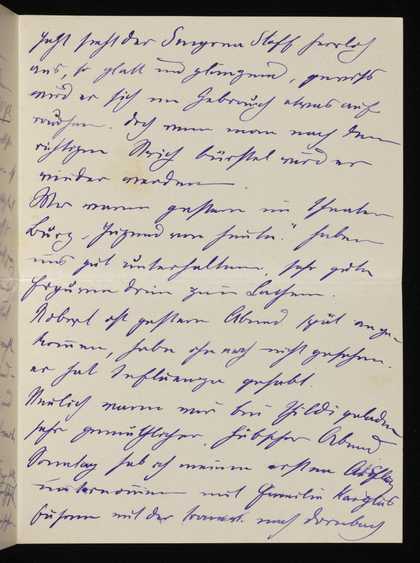 Jetzt sieht der Smyrna Stoff herrlich
aus, so glatt und glänzend, gewiss
wird er sich im Gebrauch etwas auf
rauhen. Doch wenn man nach dem
richtigen Strich bürstet wird er
wieder werden.
Wir waren gestern im Theater
Burg „Jugend von heute." haben
uns gut unterhalten, sehr gute
Figuren drin zum Lachen.
Robert ist gestern Abend spät ange-
kommen, habe ihn noch nicht gesehen.
er hat Influenza gehabt.
Neulich waren wir bei Thildi geladen
sehr gemüthlicher, hübscher Abend
Sonntag hab ich meinen ersten Ausflug
unternommen mit Familie
fuhren mit der nach Dornbach